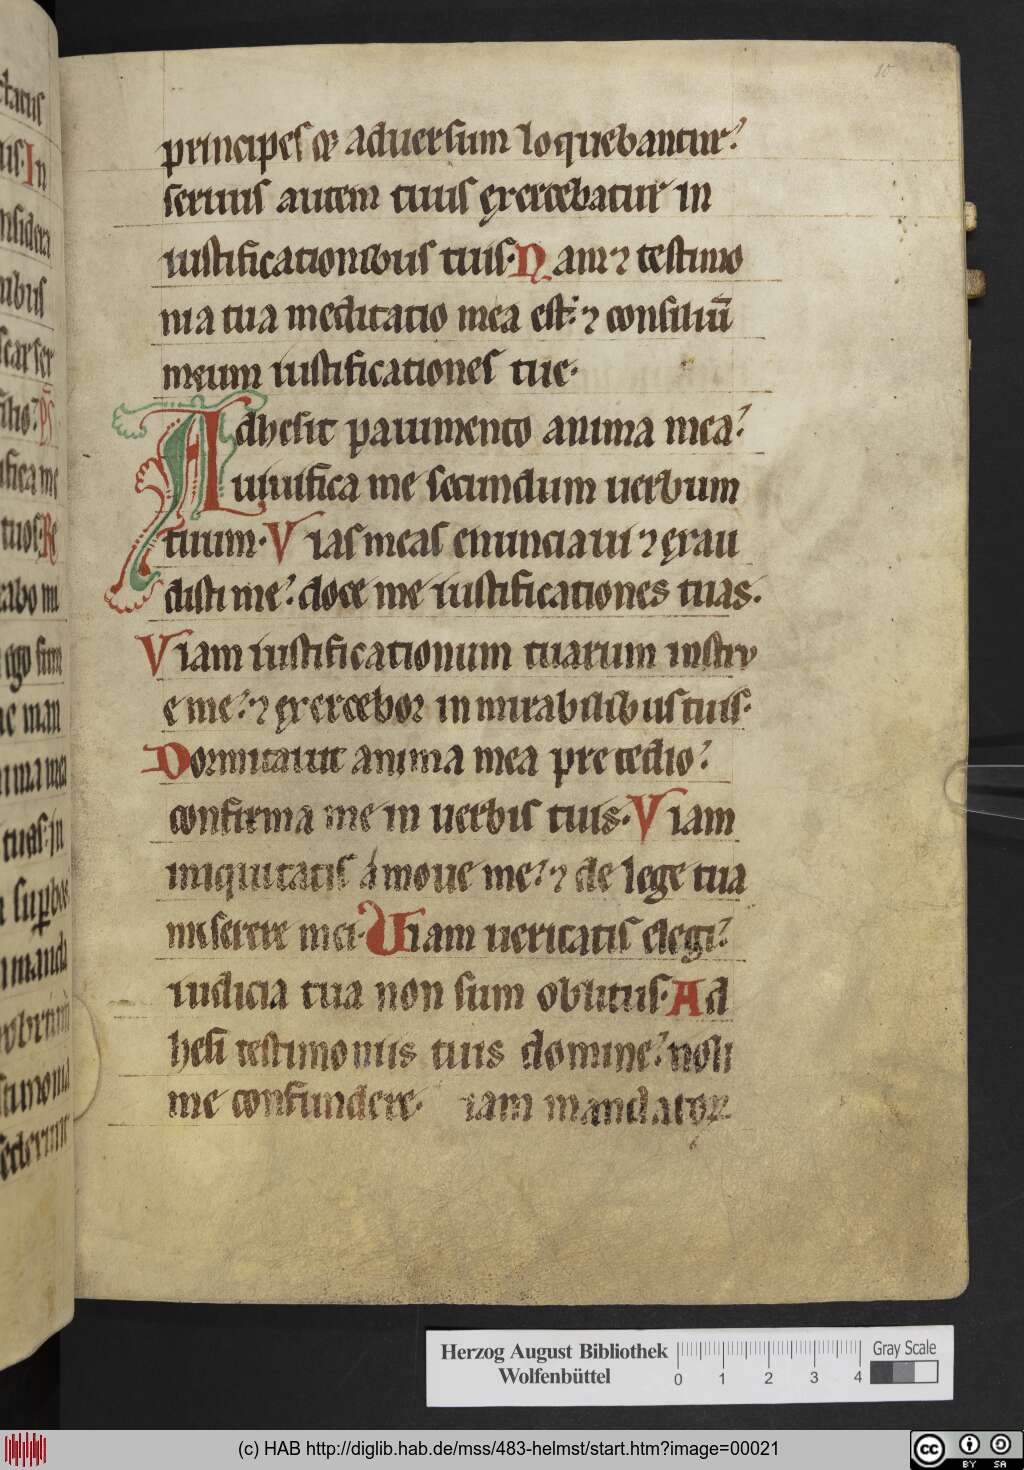 10
principes & aduersum loquebantur?
seruus autem tuus exercebatur in
iustificationibus tuis. Nam ⁊ testimo
nia tua meditatio mea est? ⁊ consiliū
meum iustificationes tue.
Adhesit pauimento anima mea?
uiuifica me secundum uerbum
tuum. Vias meas enunciaui ⁊ exau
disti me? doce me iustificationes tuas.
Viam iustificationum tuarum instru
e me? ⁊ exercebor in mirabilibus tuis.
Dormitauit anima mea pre tedio?
confirma me in uerbis tuis. Viam
iniquitatis amoue me? ⁊ de lege tua
miserere mei. Uiam ueritatis elegi?
iudicia tua non sum oblitus. Ad
hesi testimoniis tuis domine? noli
me confundere. iam mandatorum
Herzog August Bibliothek
Wolfenbüttel
0 1 2 3 4
Gray Scale
(c) HAB http://diglib.hab.de/mss/483-helmst/start.htm?image=00021
cc BY SA